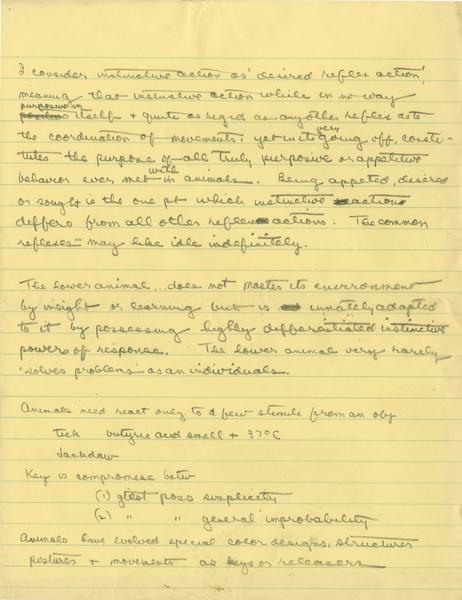 I consider instinctive action as 'desired reflex action',
meaning that instinctive action while in no way
purposive in
itself + quite as rigid as any other reflex as to
the coordination of movements, yet in its very going off, consti-
tutes the purpose of all truly purposive or appetitive
behavior ever met with in animals. Being appeted, desired
or sought is the one pt which instinctive actions
differs from all other reflex actions: The common
reflexes... may lie idle indefinitely.
The lower animal...does not master its environment
by insight or learning but is innately adapted
to it by possessing highly differentiated instinctive
powers of response. The lower animal very rarely
'solves problems' as an individuals.
Animals need react only to a few stimuli from an obj.
tick butyric acid smell + 37°C
Jackdaw
Key is compromise betw
(1) gtest poss simplicity
(2) " " general improbability
Animals have evolved special color designs, structures
postures + movements as keys or releasers